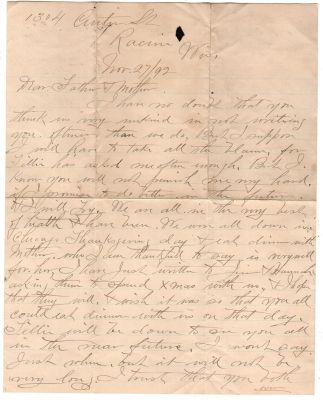 1304 St
Racine
Wis.
Nov. 27/92
Dear Father & Mother
I have no doubt that you
think us very unkind in not writing
you oftener than we do, but I suppose
I will have to take all the blame, for
Tillie has asked me often enough. But I
know you will not punish me very hard,
if I promise to do better in the future.
We are all in the very best
of health & have been. We were all down in
Chicago Thanksgiving day & eat dinner with
Mother, who I am thankful to say is very well
for her, I have just written to &
asking them to spend Xmas with us, & I hope
that they will. I wish it was so that you all
could eat dinner with us on that day.
Tillie will be down to see you all
in the near future. I wont say
Just when, but it will not be
very long. I trust that you both